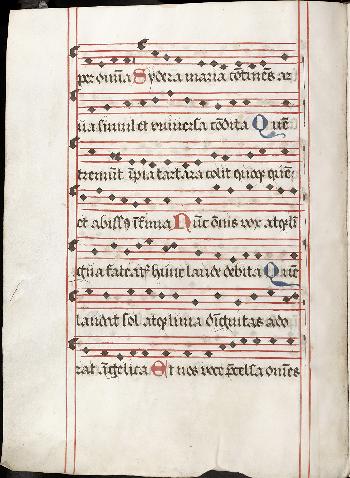 per om̄ia Sydera maria cōtinēs ar
ua simul et vniuersa cōdita Quē
tremūt īpia tartara colit quoqȝ quē
et abissꝰ īfima Nūc om̄is vox atqȝ lī
gua fateat᷑ hunc laude debita Quē
laudat sol atqȝ luna dīgnitas ado
rat āgelica Et nos voce p̄celsa om̄es